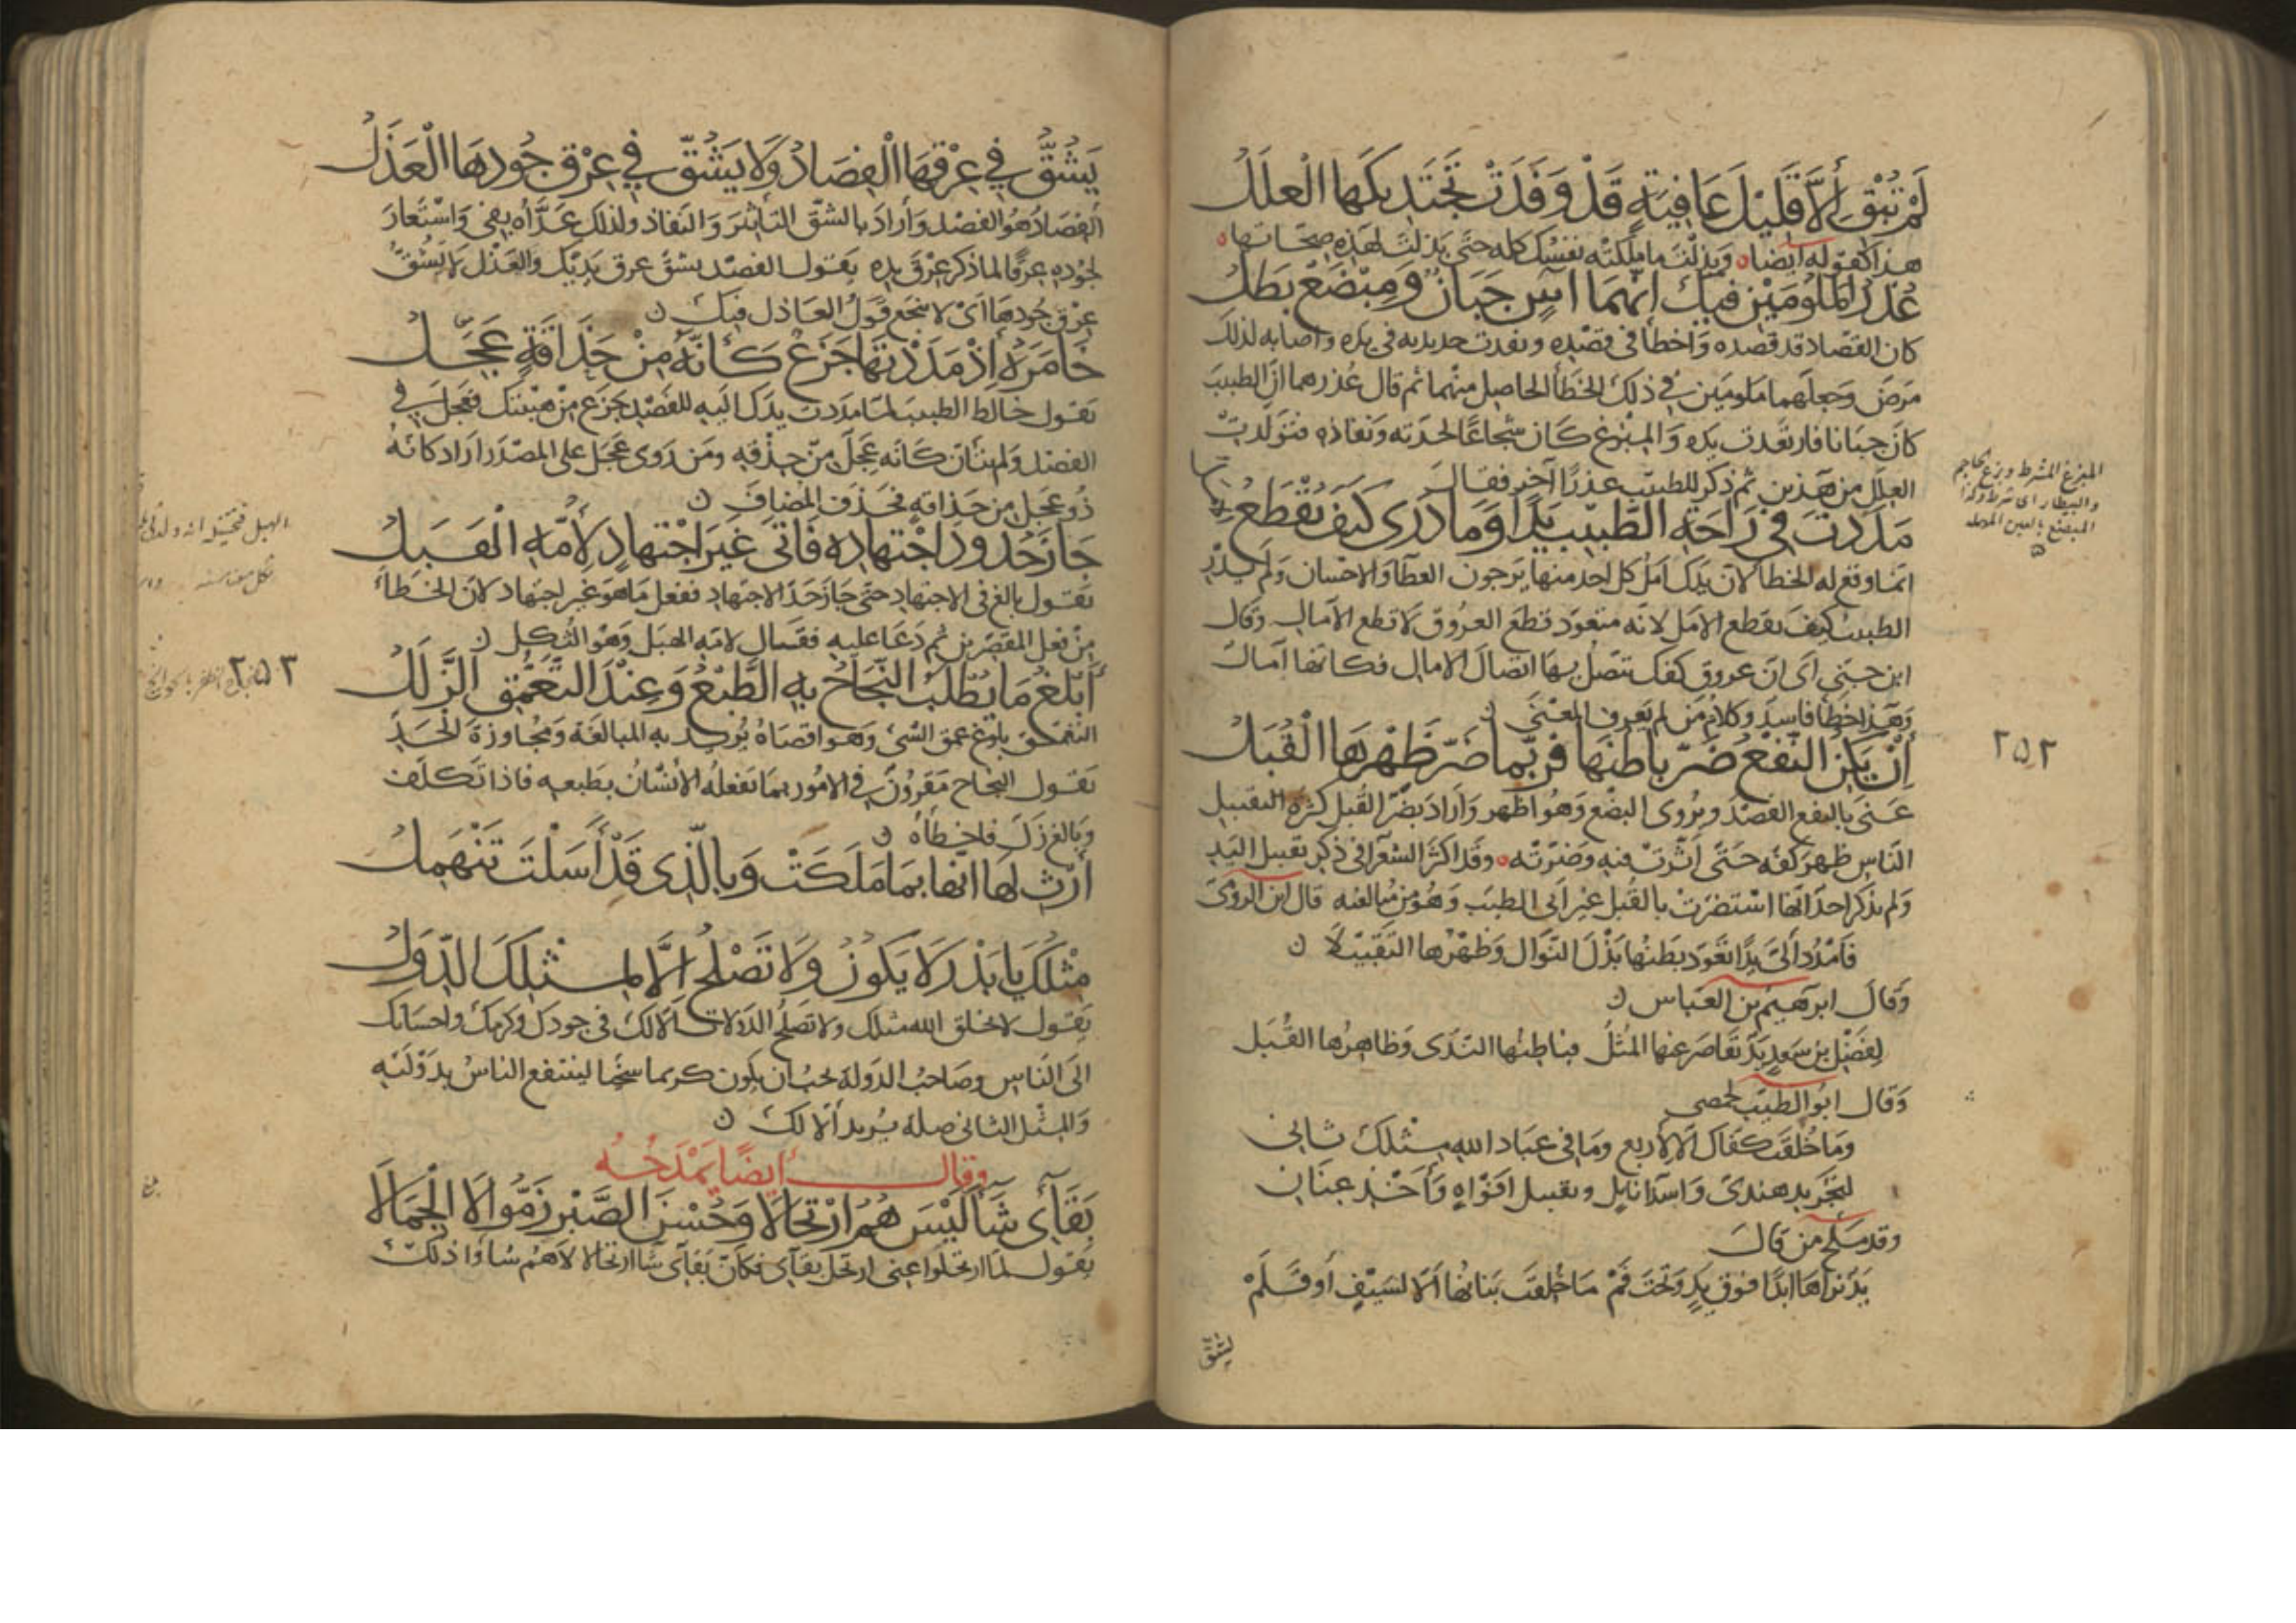 لَمْ تُبْقِ إِلَّا قَلِيلَ عَافِيَةٍ قَدْ وَفَدَتْ تَجْتَدِيكَهَا الْعِلَلُ
هذا كقوله أيضا وبذلت ما ملكته نفسك كله حتى بذلت لهذه صحاتها
عُذْرُ الْمَلُومَيْنِ فِيكَ إِنَّهُمَا آسٍ جَبَانٌ وَمِبْضَعٌ بَطَلُ
كان الفصاد قد فصده واخطأ في فصده ونفذت حديدته في يده واصابه لذلك
مرض وجعلهما ملومين في ذلك الخطأ الحاصل منهما ثم قال عذرهما ان الطبيب
كان جبانا فارتعدت يده والمبزغ كان شجاعا لحدته ونفاذه فتولدت
العلل من هذين ثم ذكر للطبيب عذرا آخر فقال
مَدَدْتَ فِي رَاحَةِ الطَّبِيبِ يَدًا وَمَا دَرَى كَيْفَ يُقْطَعُ
انما وقع له الخطا لان يدك امل كل احد منها يرجون العطا والاحسان ولم يدر
الطبيب كيف يقطع الامل لانه متعود قطع العروق لا قطع الآمال وقال
ابن جني اى ان عروق كفك تتصل بها اتصال الآمال فكانها آمال
وهذا خطا فاسد وكلام من لم يعرف المعنى
إِنْ يَكُنِ النَّفْعُ ضَرَّ بَاطِنَهَا فَرُبَّمَا ضَرَّ ظَهْرَهَا الْقُبَلُ
عنى بالنفع الفصد ويروى البضع وهو اظهر واراد بضر القبل كثرة التقبيل
الناس ظهر كفه حتى اثرت فيه وضرته وقد اكثر الشعرا في ذكر تقبيل اليد
ولم يذكر احد انها استضرت بالقبل غير ابى الطيب وهو من مبالغته قال ابن الرومى
فَامْدُدْ اِلَىَّ يَدًا تَعَوَّدَ بَطْنُهَا بَذْلَ النَّوَالِ وَظَهْرُهَا التَّقْبِيلَا
وقال ابرهيم بن العباس
لِفَضْلِ بْنِ سَهْلٍ يَدٌ تَقَاصَرَ عَنْهَا الْمَثَلُ فباطنها الندى وظاهرها القبل
وقال ابو الطيب
وما خلقت كفاك الا لاربع وما في عباد الله مثلك ثانى
لتجريد هندى واسدا نايل وتقبيل افواه واخذ عنان
وقد ملح من قال
يد تراها ابدا فوق يد وتحت فم ما خلقت بنانها الا لسيف او قلم
يشق
المبزغ المشرط وبزغ الحاجم
والبيطار اى شرط وكذا
٢٥٢
يَشُقُّ فِي عِرْقِهَا الْفِصَادُ وَلَا يَشُقُّ فِي عِرْقِ جُودِهَا الْعَذَلُ
الفصاد هو الفصد واراد بالشق التأثير والنفاذ ولذلك عداه بفي واستعار
لجوده عرقا لما ذكر عرق يده يقول الفصد يشق عرق يديك والعذل لا يشق
عرق جودها اى لا ينجع قول العاذل فيك
خَامَرَهُ إِذْ مَدَدْتَهَا جَزَعٌ كَأَنَّهُ مِنْ حَذَاقَةٍ عَجِلُ
يقول خالط الطبيب لما مددت يدك اليه للفصد جزع من هيبتك فعجل في
الفصد ولم يتأن كانه عجل من حذقه ومن روى عجل على المصدر اراد كانه
ذو عجل من حذاقة فحذف المضاف
جَازَ حُدُودَ اجْتِهَادِهِ فَأَتَى غَيْرَ اجْتِهَادٍ لِأُمِّهِ الْهَبَلُ
يقول بالغ في الاجتهاد حتى جاز حد الاجتهاد ففعل ما هو غير اجتهاد لان الخطأ
من فعل المقصرين ثم دعا عليه فقال لامه الهبل وهو الثكل
أَبْلَغُ مَا يُطْلَبُ النَّجَاحُ بِهِ الطَّبْعُ وَعِنْدَ التَّعَمُّقِ الزَّلَلُ
التعمق بلوغ عمق الشئ وهو اقصاه يريد به المبالغة ومجاوزة الحد
يقول النجاح مقرون في الامور بما يفعله الانسان بطبعه فاذا تكلف
وبالغ زل فاخطأه
ارْثِ لَهَا إِنَّهَا بِمَا مَلَكَتْ وَبِالَّذِي قَدْ أَسَلْتَ تَنْهَمِلُ
مِثْلُكَ يَا بَدْرُ لَا يَكُونُ وَلَا تَصْلُحُ إِلَّا لِمِثْلِكَ الدُّوَلُ
يقول لا يخلق الله مثلك ولا تصلح الدولات الا لك في جودك وكرمك واحسانك
الى الناس وصاحب الدولة يجب ان يكون كريما سخيا لينتفع الناس بدولته
والمثل الثانى صلة يريد الا لك
وقال ايضا يمدحه
بَقَائِي شَاءَ لَيْسَ هُمُ ارْتِحَالَا وَحُسْنَ الصَّبْرِ زَمُّوا لَا الْجِمَالَا
يقول لما ارتحلوا عنى ارتحل بقآى فكان بقآى شا ارتحالا لا هم شاؤا ذلك
٢٥٣